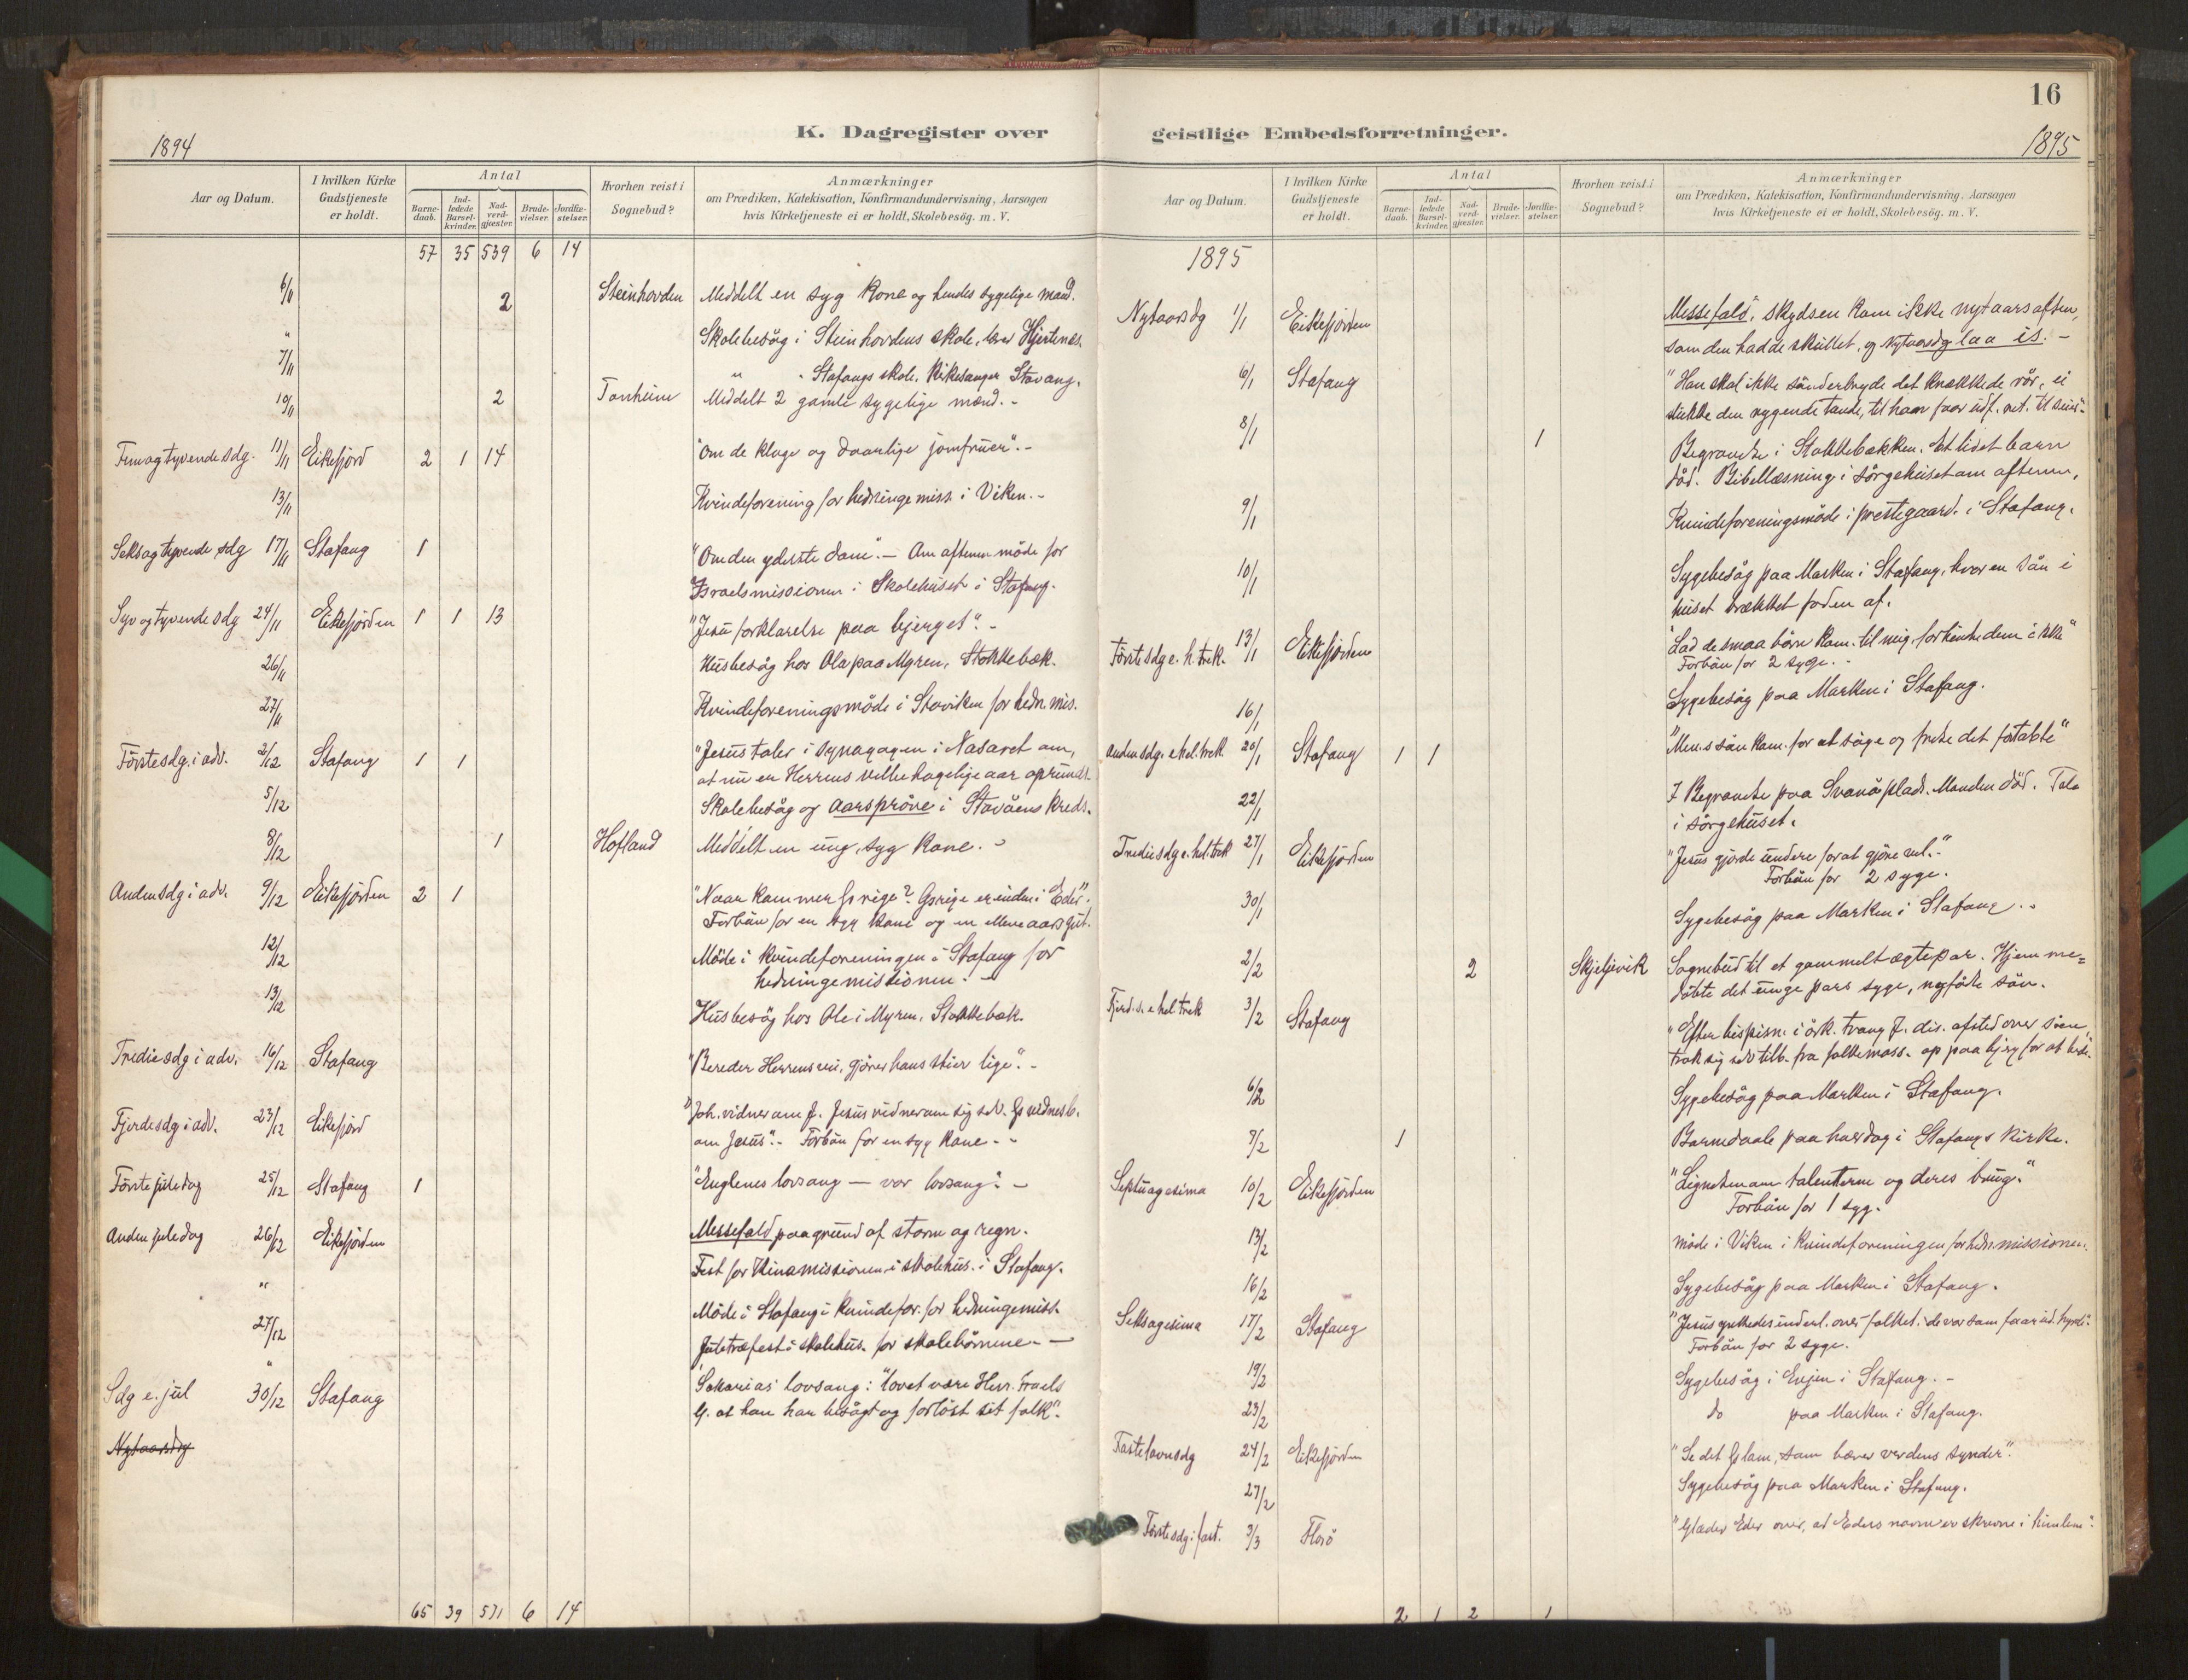 16
K. Dagregister over
1894
Aar og Datum.
I hvilken Kirke Gudstjeneste er holdt.
Antal
Barne-daab.
Ind-ledede Barsel-kvinder.
Nad-verd-gjæster.
Brude-vielser.
Jordfæ-stelser.
Hvorhen reist i Sognebud?
Anmærkninger
om Prædiken, Katekisation, Konfirmandundervisning, Aarsagen
hvis Kirketjeneste ei er holdt, Skolebesög. m. V.
57 35 539 6 14
6/11 2 Steinhovden Meddelt en syg kone og hendes sygelige mand.
" Skolebesög i Steinhovdens skole, lærer Hjertenæs.
7/11 " " Stafangs skole. Kirkesanger Stavang.
10/11 2 Tonheim Meddelt 2 gamle sygelige mænd.-
Femogtyvende sdg. 11/11 Eikefjord 2 1 14 "Om de kloge og daarlige jomfruer".-
13/11 Kvindeforening for hedninge miss. i Viken.-
Seksogtyvende sdg 17/11 Stafang 1 "Om den yderste dom".- Om aftenen möde for
Israelsmissionen i Skolehuset i Stafang.
Syvogtyvende sdg 24/11 Eikefjorden 1 1 13 "Jesu forklarelse paa bjerget".-
26/11 Husbesög hos Ola paa Myren, Stokkebæk.
27/11 Kvindeforeningsmöde i Storviken for hedn. mis.
Förstesdg. i adv. 2/12 Stafang 1 1 "Jesus taler i synagogen i Nasaret om,
at nu er Herrens velbehagelige aar oprundt.
5/12 Skolebesög og aarspröve i Stavöens kreds.
8/12 1 Hofland Meddelt en ung, syg kone.-
Andensdg i adv. 9/12 Eikefjorden 2 1 "Naar kommer Gs rige? Gs rige er inden i Eder".
Forbön for en syg kone og en elleve aars gut.
12/12 Möde i kvindeforeningen i Stafang for
hedningemissionen.-
13/12 Husbesög hos Ole i Myren, Stokkebæk.
Trediesdg i adv. 16/12 Stafang "Bereder Herrens vei, gjörer hans stier lige".-
Fjerdesdg i adv. 23/12 Eikefjord "Joh. vidner om J. Jesus vidner om sig selv. Gs vidnesb.
om Jesus".- Forbön for en syg kone.-
Förste juledag 25/12 Stafang 1 "Englenes lovsang — vor lovsang".-
Anden juledag 26/12 Eikefjorden Messefald paa grund af storm og regn.
" Fest for Kinamissionen i skolehus. i Stafang.
27/12 Möde i Stafang i kvindefor. for hedningemiss.
" Juletræfest i skolehus. for skolebörnene.—
Sdg e. jul 30/12 Stafang Sakarias' lovsang: "Lovet være Herr. Israels
G. at han har besögt og forlöst sit folk".
Nytaarsdg
65 39 571 6 14
geistlige Embedsforretninger.
1895
Aar og Datum.
I hvilken Kirke Gudstjeneste er holdt.
Antal
Barne-daab.
Ind-ledede Barsel-kvinder.
Nad-verd-gjæster.
Brude-vielser.
Jordfæ-stelser.
Hvorhen reist i Sognebud?
Anmærkninger
om Prædiken, Katekisation, Konfirmandundervisning, Aarsagen
hvis Kirketjeneste ei er holdt, Skolebesög. m. V.
1895
Nytaarsdg 1/1 Eikefjorden Messefald, skydsen kom ikke nytaarsaften,
som den hadde skullet, og Nytaarsdg laa is.-
6/1 Stafang "Han skal ikke sönderbryde det knækkede rör, ei
slukke den rygende tande, til han faar udf. ret. til seier".
8/1 1 Begravelse i Stokkebækken. Et lidet barn
död. Bibellæsning i sörgehuset om aftenen.
9/1 Kvindeforeningsmöde i prestegaard. i Stafang.
10/1 Sygebesög paa Marken i Stafang, hvor en sön i
huset brækket foden af.
Förstesdg e. h. trek. 13/1 Eikefjorden "Lad de smaa börn kom. til mig, forhindr dem ikke"
Forbön for 2 syge.-
16/1 Sygebesög paa Marken i Stafang.
Andensdg e hel. trek 20/1 Stafang 1 1 "Men.s sön kom. for at söge og frelse det fortabte"
22/1 Begravelse paa Svanöplads. Manden död. Tale
i sörgehuset.
Trediesdg e. hel. trek 27/1 Eikefjorden "Jesus gjorde undere for at gjöre vel".
Forbön for 2 syge.
30/1 Sygebesög paa Marken i Stafang.-
2/2 2 Skjeljevik Sognebud til et gammelt ægtepar. Hjemme=
döbte det unge pars syge, nyfödte sön.
Fjerd. s. e hel. trek 3/2 Stafang "Efter bespisn. i örk. tvang J. dis. afsted over söen,
trak sig selv tilb. fra folkemass. op paa bjerg for at bede.
6/2 Sygebesög paa Marken i Stafang.
7/2 1 Barnedaab paa hverdag i Stafangs kirke.
Septuagesima 10/2 Eikefjorden "Lignelsen om talenterne og deres brug."
Forbön for 1 syg.
13/2 Möde i Viken i kvindeforeningen for hedn. missionen.
16/2 Sygebesög paa Marken i Stafang.
Seksagesima 17/2 Stafang "Jesus ynkedes inderl. over folket. de var som faar ud. hyrde".
Forbön for 2 syge.
19/2 Sygebesög i Eujen i Stafang.-
23/2 do paa Marken i Stafang.
Fastelavnsdg 24/2 Eikefjorden "Se det Gs lam, som bærer verdens synder".
27/2 Sygebesög paa Marken i Stafang.
Förstesdg. i fast. 3/3 Florö "Glæder Eder over, at Eders navne er skrevne i himlene".
2 1 2 1